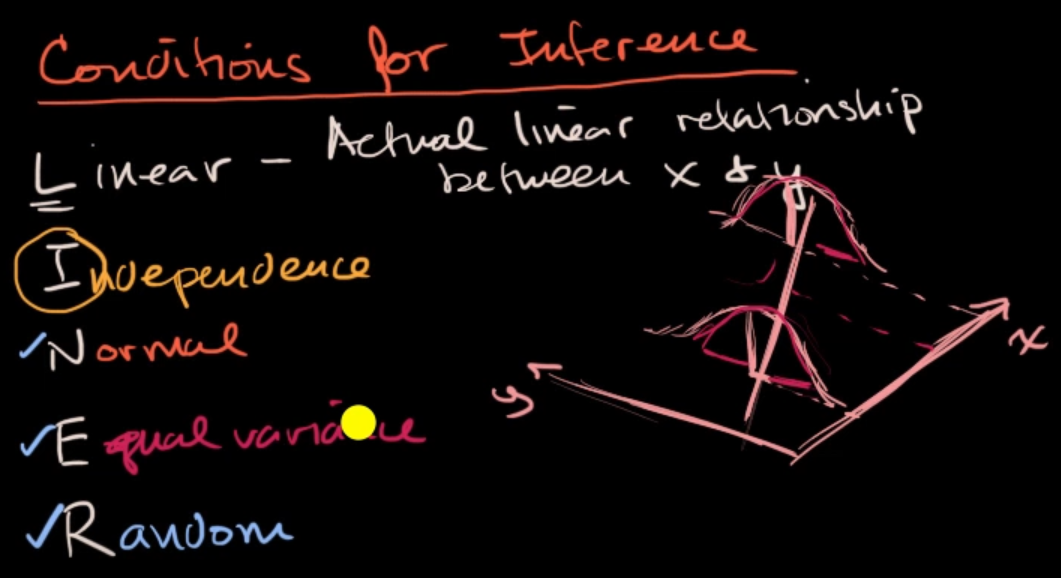 Conditions for Inference
Linear - Actual linear relationship
between x & y
Independence
Normal
Equal variance
Random
y
x